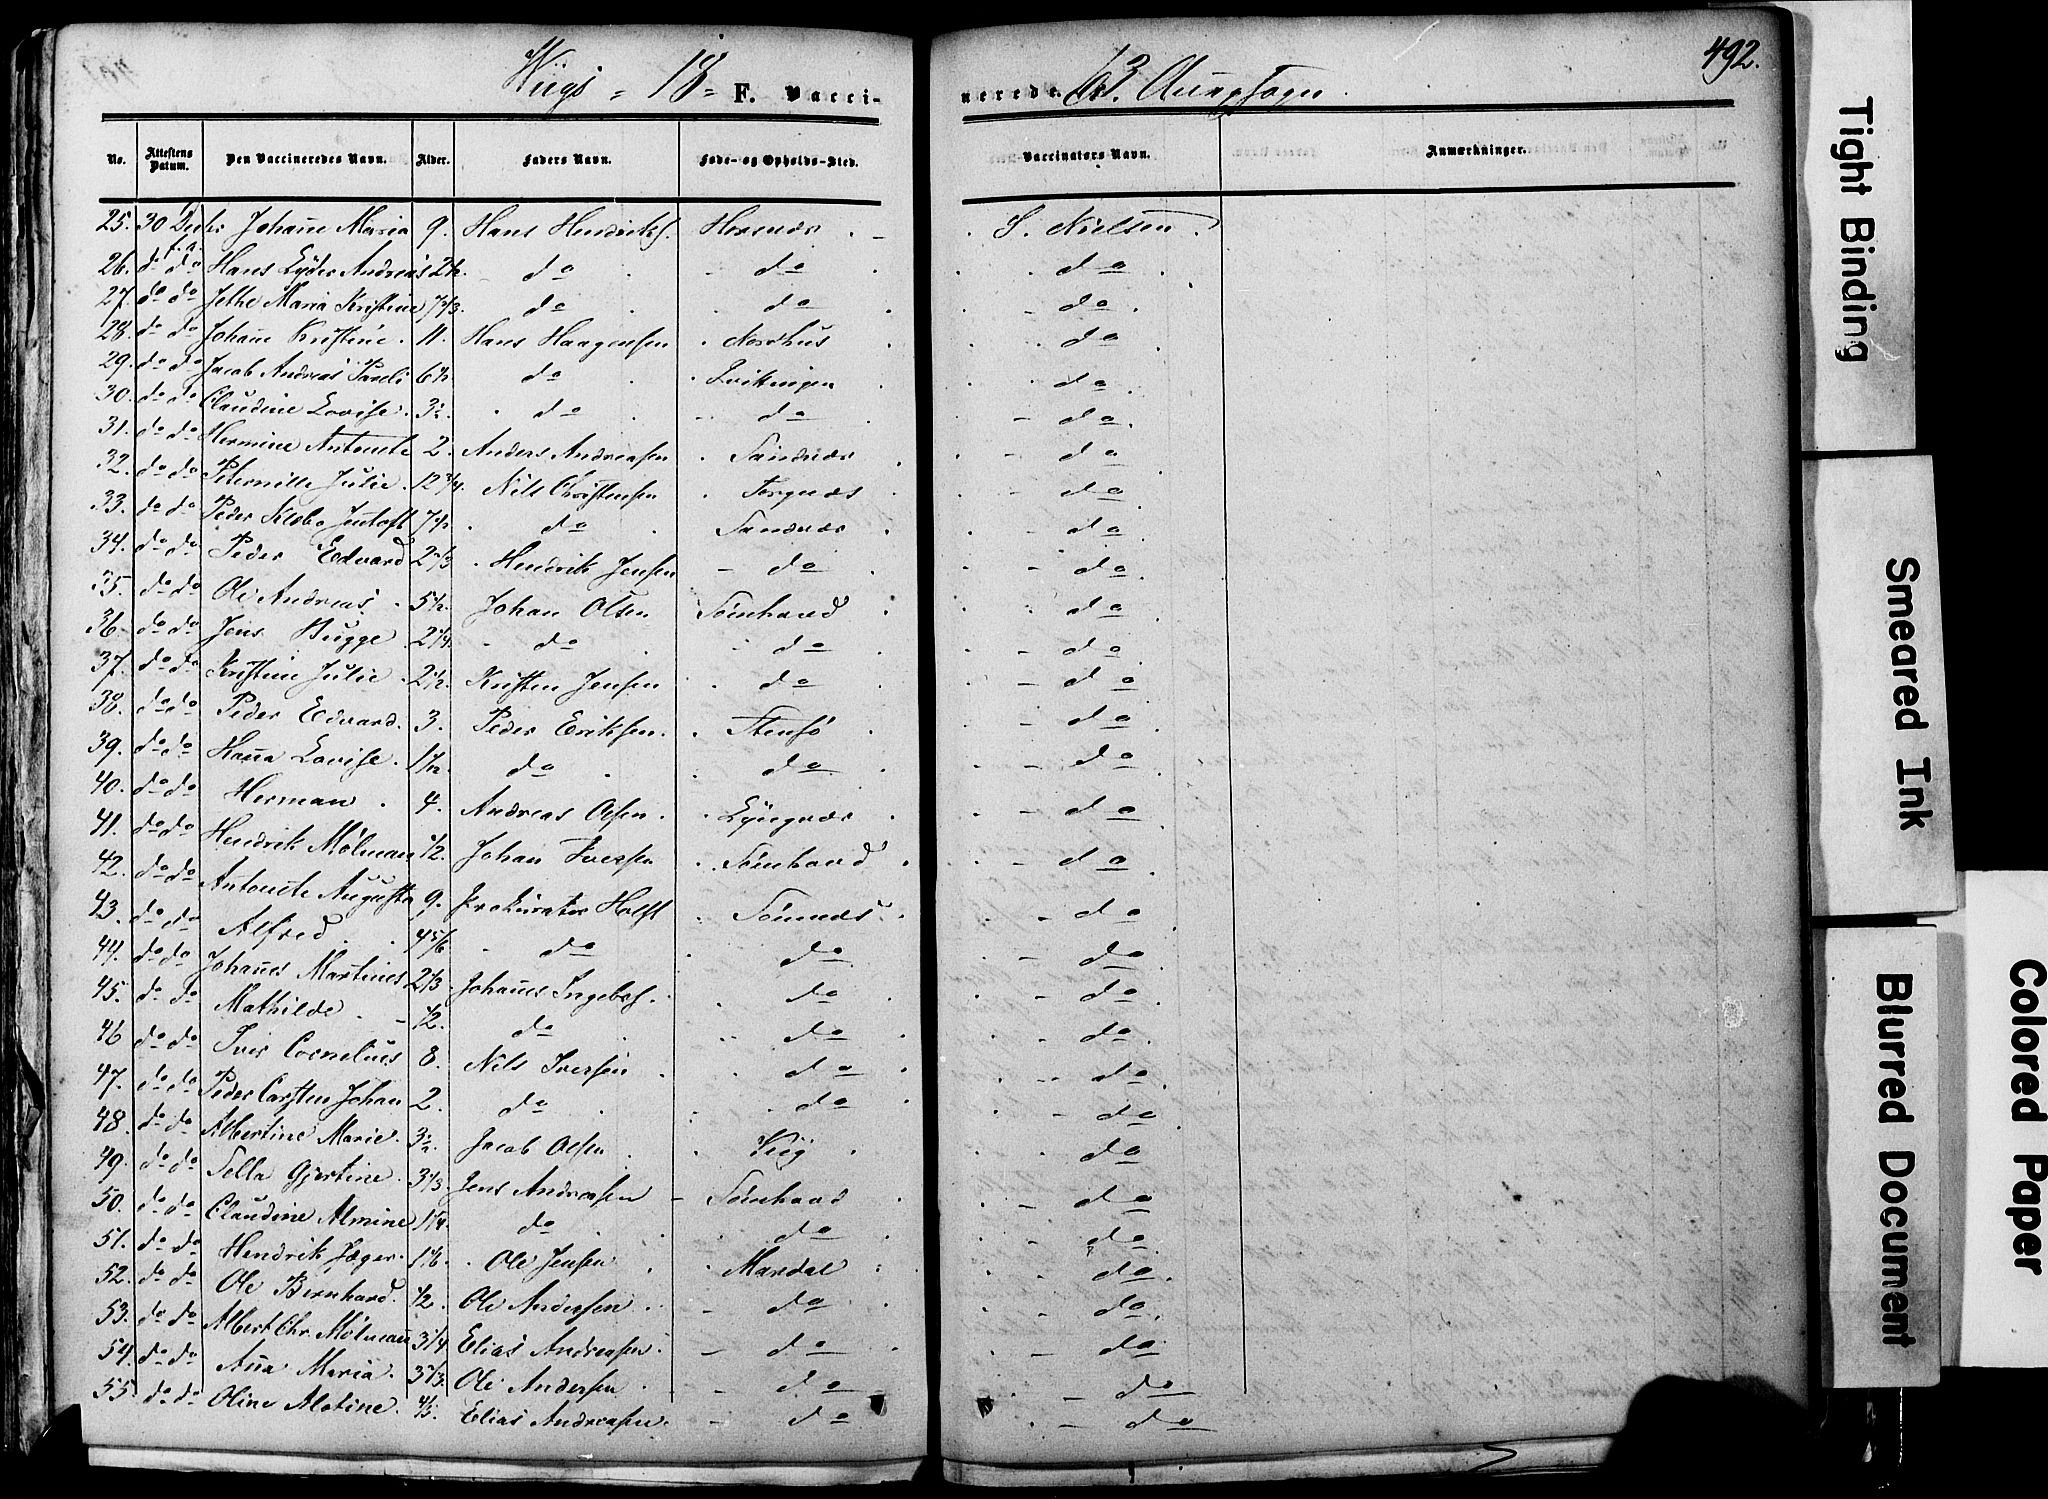 492.
Wiigs - 18 - F. Vacci-
nerede. 63. Annexsogn.
No. Attestens Datum. Den Vaccineredes Navn. Alder. Faders Navn. Føde- og Opholds-Sted. Vaccinators Navn. Anmærkninger.
25. 30 Decbr f.a. Johan̄e Maria 9. Hans Hendriks. Hersnæs. S. Nielsen.
26. do do Hans Eyder Andreas 2½. do do do
27. do do Jethe Maria Kristine 7 do do do
28. do do Johan̄e Kristine. 11. Hans Haagensen Nordhus do
29. do do Jacob Andreas Pareli 6½. do do
30. do do Claudine Lovise. 3½. do do do
31. do do Hermine Antonete 2. Anders Andreasen Sandnæs do
32. do do Peternille Julie. 12¾. Nils Christensen Torgnæs do
33. do do Peder Klebo Jentoft 7½. do Sandnæs do
34. do do Peder Edvard 2⅓ Hendrik Jensen do do
35. do do Ole Andreas. 5½. Johan Olsen Sömhovd do
36. do do Jens Bugge 2¼. do do do
37. do do Kristine Julie. 2½. Kristen Jensen do do
38. do do Peder Edvard. 3. Peder Eriksen. Stensö do
39. do do Han̄a Lovise. 1½. do do do
40. do do Herman. 4. Andreas Olsen. Lyngnæs do
41. do do Hendrik Mölman ½. Johan Iversen Sömhovd do
42. do do Antonete Augusta 9. Prokurator Holst Sömnæs. do
43. do do Alfred. 4⅚ do do do
44. do do Johan̄es Martines 2⅓. Johan̄es Ingebr. do do
45. do do Mathilde ½. do do do
46 do do Iver Cornelius 8. Nils Iversen do do
47. do do Peder Carsten Johan 2. do do do
48. do do Albertine Marie. 3½. Jacob Olsen Viig do
49. do do Sella Gjertine. 3⅓. Jens Andreasen Sömhovd do
50. do do Claudine Almine 1¼. do do do
51. do do Hendrik Jæger. 1⅙. Ole Jensen Mardal do
52. do do Ole Bernhard. ½. Ole Andersen do do
53. do do Albert Chr. Mölman 3¼ Elias Andreasen. do do
54. do do An̄a Maria. 3⅔. Ole Andersen do do
55. do do Oline Alotine. Elias Andreasen. do do
Tight Binding
Smeared Ink
Colored Paper
Blurred Document